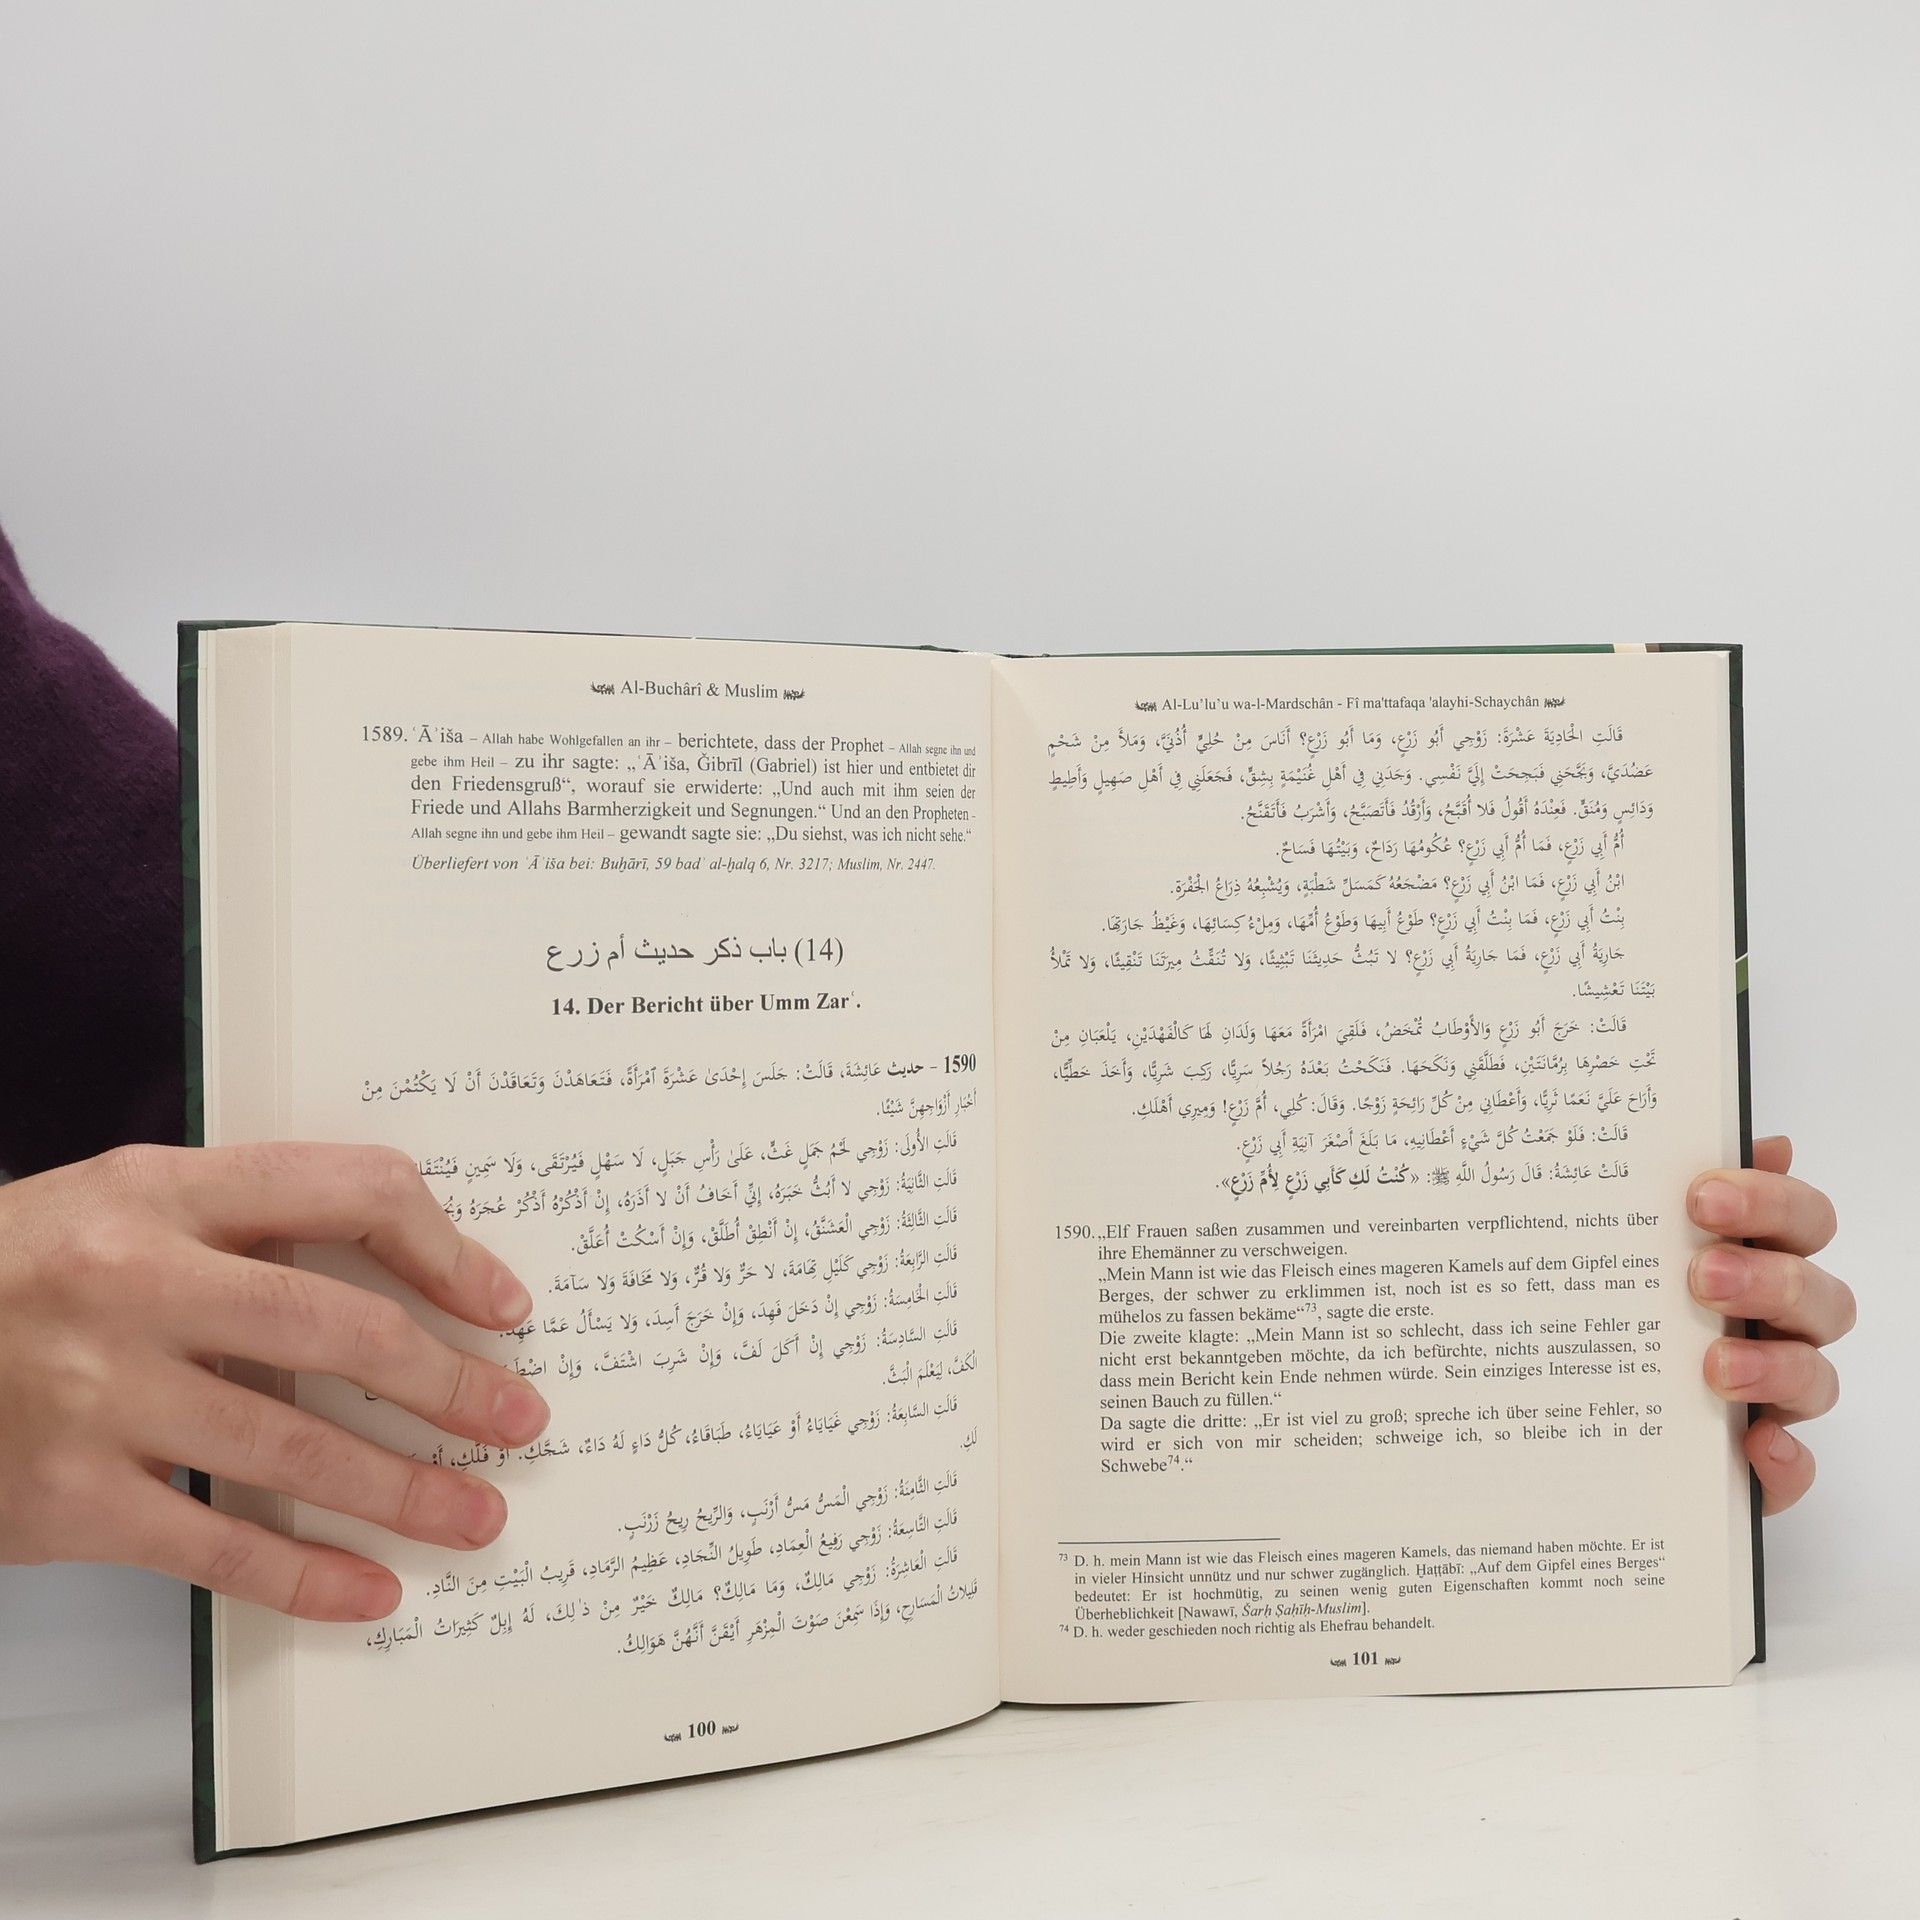 Al-Buchârî & Muslim
1589. ʿĀʾiša – Allah habe Wohlgefallen an ihr – berichtete, dass der Prophet – Allah segne ihn und
gebe ihm Heil – zu ihr sagte: „ʿĀʾiša, Ǧibrīl (Gabriel) ist hier und entbietet dir
den Friedensgruß“, worauf sie erwiderte: „Und auch mit ihm seien der
Friede und Allahs Barmherzigkeit und Segnungen.“ Und an den Propheten -
Allah segne ihn und gebe ihm Heil – gewandt sagte sie: „Du siehst, was ich nicht sehe.“
Überliefert von ʿĀʾiša bei: Buḫārī, 59 badʾ al-ḫalq 6, Nr. 3217; Muslim, Nr. 2447.
(14) باب ذكر حديث أم زرع
14. Der Bericht über Umm Zarʿ.
1590 - حديث عَائِشَةَ، قَالَتْ: جَلَسَ إِحْدَىٰ عَشْرَةَ ٱمْرَأَةً، فَتَعَاهَدْنَ وَتَعَاقَدْنَ أَنْ لَا يَكْتُمْنَ مِنْ
أَخْبَارِ أَزْوَاجِهِنَّ شَيْئًا.
قَالَتِ الأُولَى: زَوْجِي لَحْمُ جَمَلٍ غَثٌّ، عَلَىٰ رَأْسِ جَبَلٍ، لَا سَهْلٍ فَيُرْتَقَى، وَلَا سَمِينٍ فَيُنْتَقَلُ
قَالَتِ الثَّانِيَةُ: زَوْجِي لا أَبُثُّ خَبَرَهُ، إِنِّي أَخَافُ أَنْ لا أَذَرَهُ، إِنْ أَذْكُرْهُ أَذْكُرْ عُجَرَهُ
قَالَتِ الثَّالِثَةُ: زَوْجِي الْعَشَنَّقُ، إِنْ أَنْطِقْ أُطَلَّقْ، وَإِنْ أَسْكُتْ أُعَلَّقْ.
قَالَتِ الرَّابِعَةُ: زَوْجِي كَلَيْلِ تِهَامَةَ، لا حَرٌّ وَلا قُرٌّ، وَلا مَخَافَةَ وَلا سَآمَةَ.
قَالَتِ الْخَامِسَةُ: زَوْجِي إِنْ دَخَلَ فَهِدَ، وَإِنْ خَرَجَ أَسِدَ، وَلا يَسْأَلُ عَمَّا عَهِدَ.
قَالَتِ السَّادِسَةُ: زَوْجِي إِنْ أَكَلَ لَفَّ، وَإِنْ شَرِبَ اشْتَفَّ، وَإِنْ
الْكَفَّ، لِيَعْلَمَ الْبَثَّ.
قَالَتِ السَّابِعَةُ: زَوْجِي غَيَايَاءُ أَوْ عَيَايَاءُ، طَبَاقَاءُ، كُلُّ دَاءٍ لَهُ دَاءٌ، شَجَّكِ. أَوْ فَلَّكِ، أَوْ
لَكِ.
قَالَتِ الثَّامِنَةُ: زَوْجِي الْمَسُّ مَسُّ أَرْنَبٍ، وَالرِّيحُ رِيحُ زَرْنَبٍ.
قَالَتِ التَّاسِعَةُ: زَوْجِي رَفِيعُ الْعِمَادِ، طَوِيلُ النِّجَادِ، عَظِيمُ الرَّمَادِ، قَرِيبُ الْبَيْتِ مِنَ النَّادِ.
قَالَتِ الْعَاشِرَةُ: زَوْجِي مَالِكٌ، وَمَا مَالِكٌ؟ مَالِكٌ خَيْرٌ مِنْ ذٰلِكَ، لَهُ إِبِلٌ كَثِيرَاتُ الْمَبَارِكِ،
قَلِيلاتُ الْمَسَارِحِ، وَإِذَا سَمِعْنَ صَوْتَ الْمِزْهَرِ أَيْقَنَّ أَنَّهُنَّ هَوَالِكُ.
100
Al-Lu’lu’u wa-l-Mardschân - Fî ma'ttafaqa 'alayhi-Schaychân
قَالَتِ الْحَادِيَةَ عَشْرَةَ: زَوْجِي أَبُو زَرْعٍ، وَمَا أَبُو زَرْعٍ؟ أَنَاسَ مِنْ حُلِيٍّ أُذُنَيَّ، وَمَلأَ مِنْ شَحْمٍ
عَضُدَيَّ، وَبَجَّحَنِي فَبَجِحَتْ إِلَيَّ نَفْسِي. وَجَدَنِي فِي أَهْلِ غُنَيْمَةٍ بِشِقٍّ، فَجَعَلَنِي فِي أَهْلِ صَهِيلٍ وَأَطِيطٍ
وَدَائِسٍ وَمُنَقٍّ. فَعِنْدَهُ أَقُولُ فَلا أُقَبَّحُ، وَأَرْقُدُ فَأَتَصَبَّحُ، وَأَشْرَبُ فَأَتَقَنَّحُ.
أُمُّ أَبِي زَرْعٍ، فَمَا أُمُّ أَبِي زَرْعٍ؟ عُكُومُهَا رَدَاحٌ، وَبَيْتُهَا فَسَاحٌ.
ابْنُ أَبِي زَرْعٍ، فَمَا ابْنُ أَبِي زَرْعٍ؟ مَضْجَعُهُ كَمَسَلِّ شَطْبَةٍ، وَيُشْبِعُهُ ذِرَاعُ الْجَفْرَةِ.
بِنْتُ أَبِي زَرْعٍ، فَمَا بِنْتُ أَبِي زَرْعٍ؟ طَوْعُ أَبِيهَا وَطَوْعُ أُمِّهَا، وَمِلْءُ كِسَائِهَا، وَغَيْظُ جَارَتِهَا.
جَارِيَةُ أَبِي زَرْعٍ، فَمَا جَارِيَةُ أَبِي زَرْعٍ؟ لا تَبُثُّ حَدِيثَنَا تَبْثِيثًا، وَلا تُنَقِّثُ مِيرَتَنَا تَنْقِيثًا، وَلا تَمْلأُ
بَيْتَنَا تَعْشِيشًا.
قَالَتْ: خَرَجَ أَبُو زَرْعٍ وَالأَوْطَابُ تُمْخَضُ، فَلَقِيَ امْرَأَةً مَعَهَا وَلَدَانِ لَهَا كَالْفَهْدَيْنِ، يَلْعَبَانِ مِنْ
تَحْتِ خَصْرِهَا بِرُمَّانَتَيْنِ، فَطَلَّقَنِي وَنَكَحَهَا. فَنَكَحْتُ بَعْدَهُ رَجُلاً سَرِيًّا، رَكِبَ شَرِيًّا، وَأَخَذَ خَطِّيًّا،
وَأَرَاحَ عَلَيَّ نَعَمًا ثَرِيًّا، وَأَعْطَانِي مِنْ كُلِّ رَائِحَةٍ زَوْجًا. وَقَالَ: كُلِي، أُمَّ زَرْعٍ! وَمِيرِي أَهْلَكِ.
قَالَتْ: فَلَوْ جَمَعْتُ كُلَّ شَيْءٍ أَعْطَانِيهِ، مَا بَلَغَ أَصْغَرَ آنِيَةِ أَبِي زَرْعٍ.
قَالَتْ عَائِشَةُ: قَالَ رَسُولُ اللَّهِ ﷺ: «كُنْتُ لَكِ كَأَبِي زَرْعٍ لِأُمِّ زَرْعٍ».
1590. „Elf Frauen saßen zusammen und vereinbarten verpflichtend, nichts über
ihre Ehemänner zu verschweigen.
„Mein Mann ist wie das Fleisch eines mageren Kamels auf dem Gipfel eines
Berges, der schwer zu erklimmen ist, noch ist es so fett, dass man es
mühelos zu fassen bekäme“73, sagte die erste.
Die zweite klagte: „Mein Mann ist so schlecht, dass ich seine Fehler gar
nicht erst bekanntgeben möchte, da ich befürchte, nichts auszulassen, so
dass mein Bericht kein Ende nehmen würde. Sein einziges Interesse ist es,
seinen Bauch zu füllen.“
Da sagte die dritte: „Er ist viel zu groß; spreche ich über seine Fehler, so
wird er sich von mir scheiden; schweige ich, so bleibe ich in der
Schwebe74.“
73 D. h. mein Mann ist wie das Fleisch eines mageren Kamels, das niemand haben möchte. Er ist
in vieler Hinsicht unnütz und nur schwer zugänglich. Ḫaṭṭābī: „Auf dem Gipfel eines Berges“
bedeutet: Er ist hochmütig, zu seinen wenig guten Eigenschaften kommt noch seine
Überheblichkeit [Nawawī, Šarḥ Ṣaḥīḥ-Muslim].
74 D. h. weder geschieden noch richtig als Ehefrau behandelt.
101